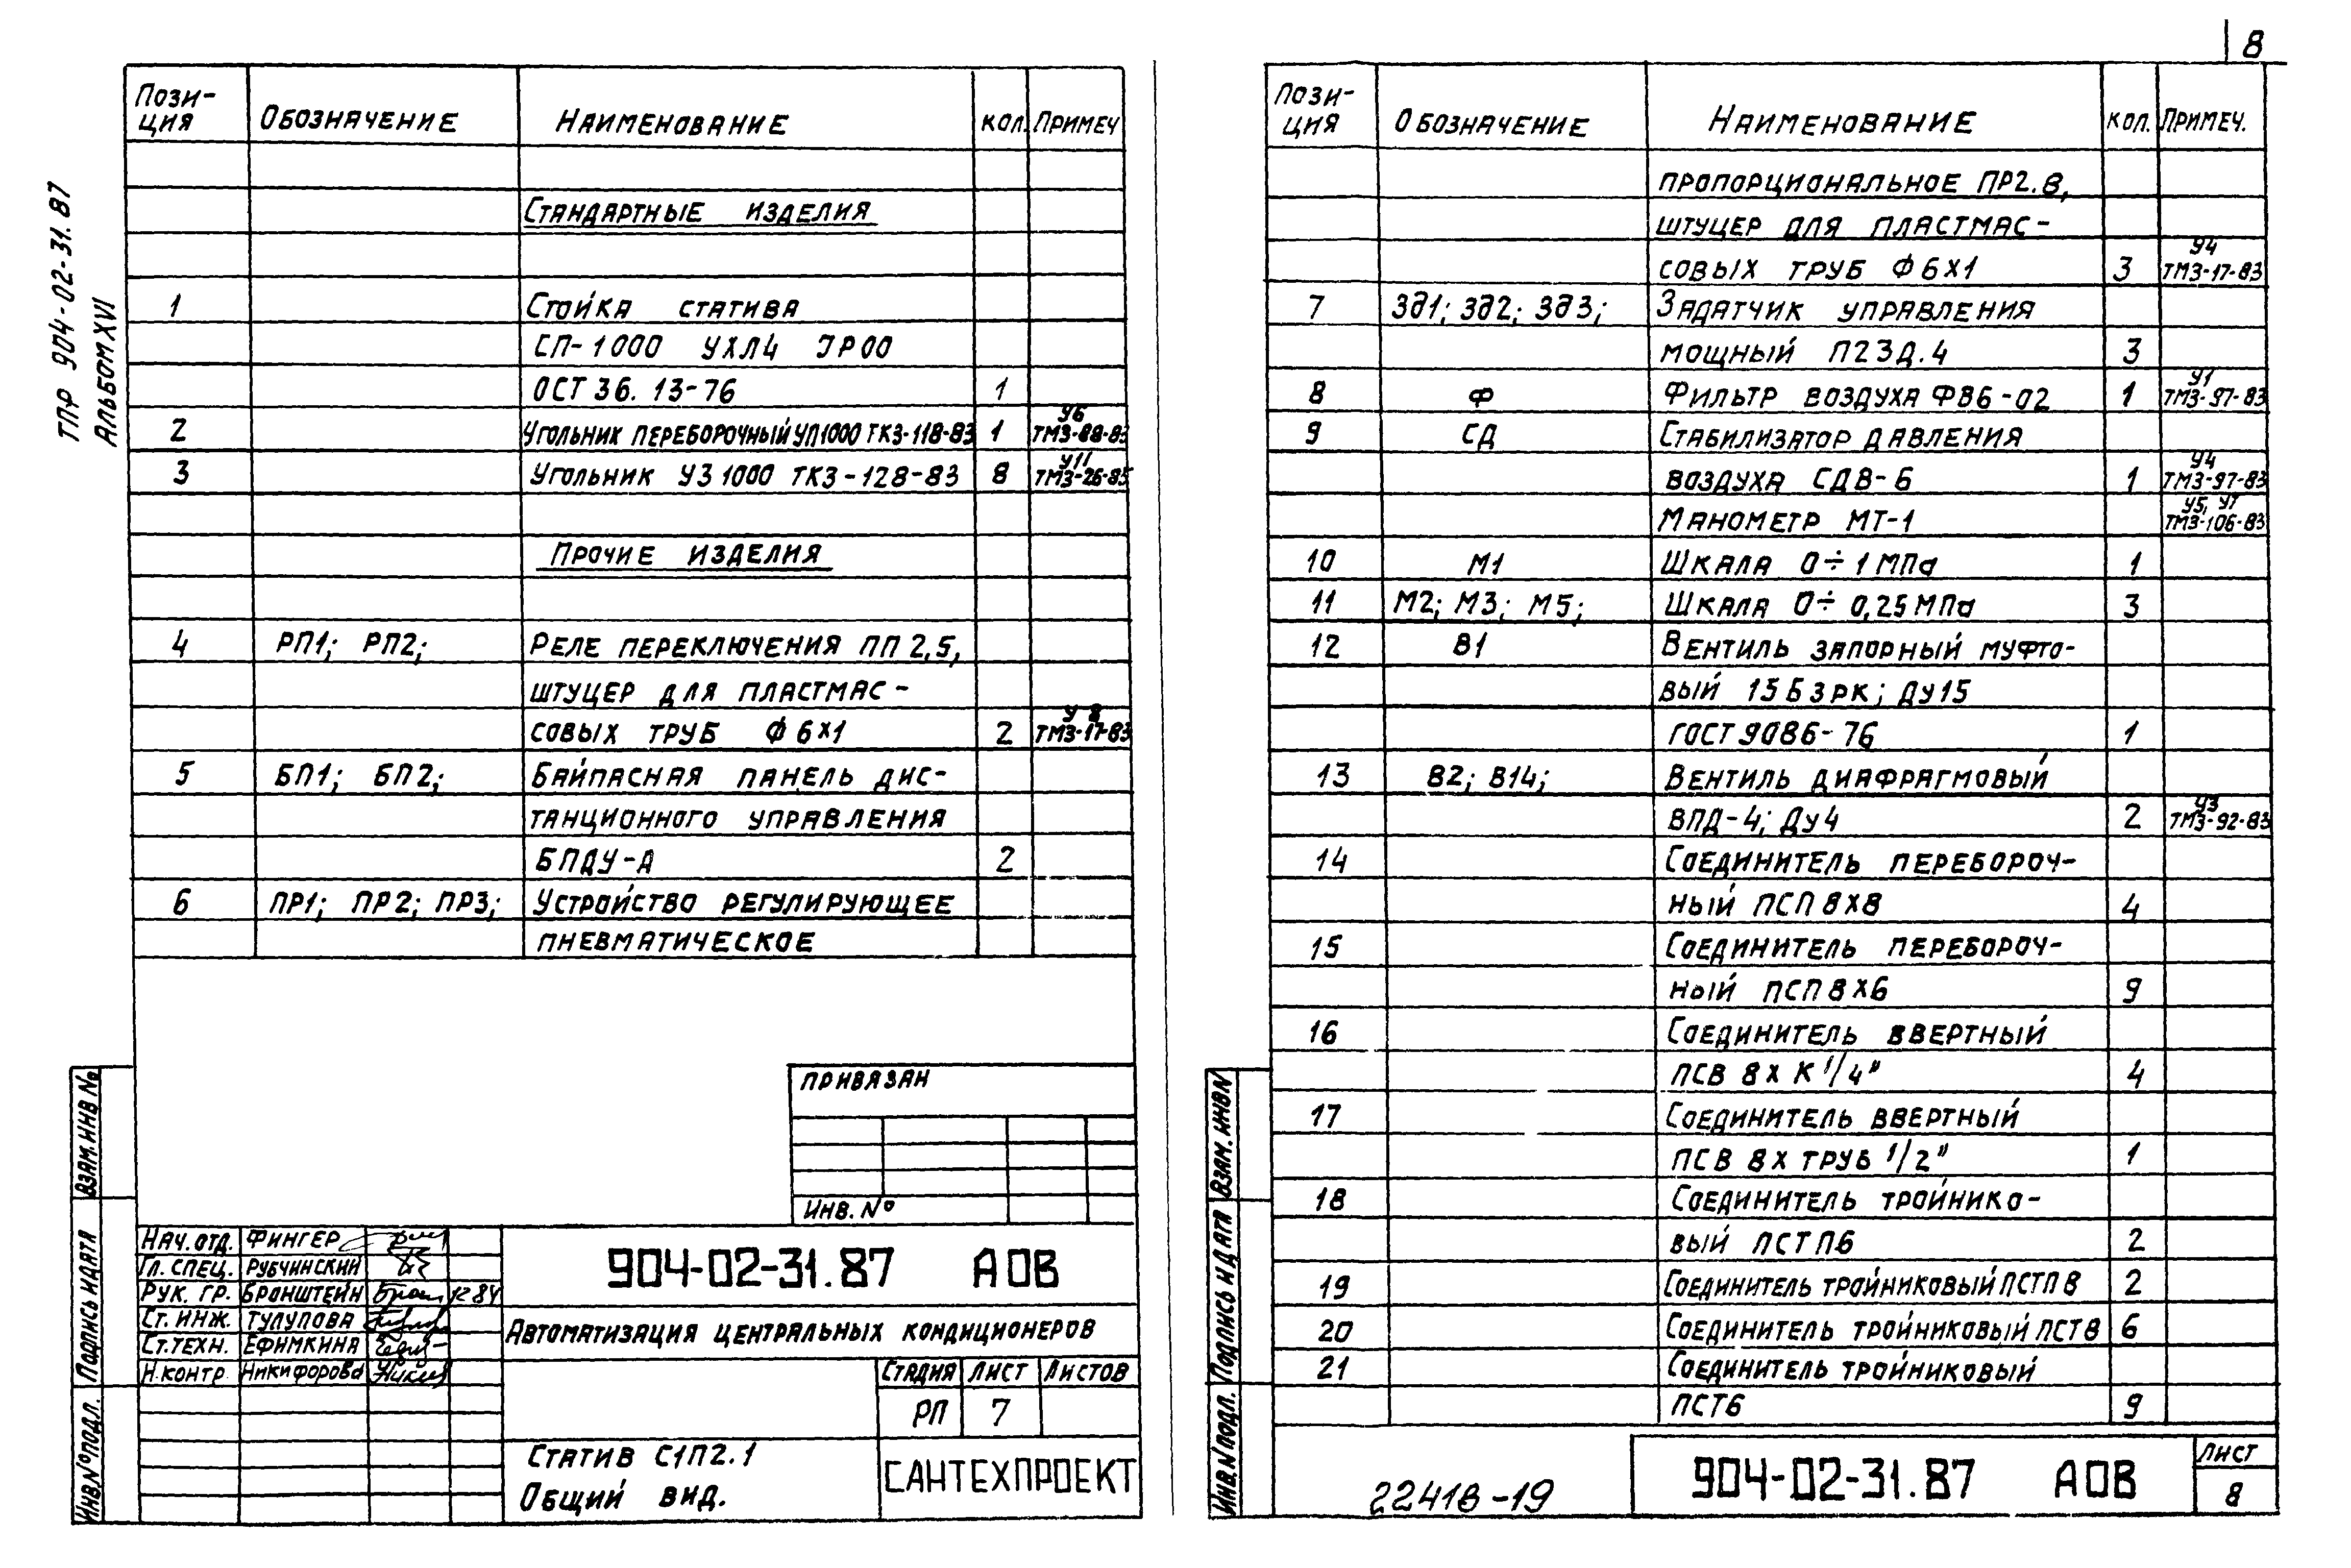 8
ТПР 904-02-31.87
Альбом XVI
Пози-ция Обозначение Наименование Кол. Примеч
Стандартные изделия
1 Стойка статива
СП-1000 УХЛ4 IP00
ОСТ 36.13-76 1
2 Угольник переборочный УП1000 ТК3-118-83 1 У6 ТМ3-88-83
3 Угольник УЗ 1000 ТК3-128-83 8 У11 ТМ3-26-83
Прочие изделия
4 РП1; РП2; Реле переключения ПП 2,5,
штуцер для пластмас-
совых труб Ф 6х1 2 У8 ТМ3-17-83
5 БП1; БП2; Байпасная панель дис-
танционного управления
БПДУ-А 2
6 ПР1; ПР2; ПР3; Устройство регулирующее
пневматическое
Привязан
Инв. №
Нач. отд. Фингер
Гл. спец. Рубчинский
Рук. гр. Бронштейн 12 84
Ст. инж. Тулупова
Ст. техн. Ефимкина
Н. контр. Никифорова
904-02-31.87 АОВ
Автоматизация центральных кондиционеров
Стадия Лист Листов
РП 7
Статив С1П2.1
Общий вид.
САНТЕХПРОЕКТ
Взам. инв №
Подпись и дата
Инв. № подл.
Пози-ция Обозначение Наименование Кол. Примеч.
пропорциональное ПР2.8,
штуцер для пластмас-
совых труб Ф 6х1 3 У4 ТМ3-17-83
7 Зд1; Зд2; Зд3; Задатчик управления
мощный П23Д.4 3
8 Ф Фильтр воздуха ФВ6-02 1 У1 ТМ3-97-83
9 СД Стабилизатор давления
воздуха СДВ-6 1 У4 ТМ3-97-83
Манометр МТ-1 У5, У7 ТМ3-106-83
10 М1 Шкала 0÷1 МПа 1
11 М2; М3; М5; Шкала 0÷0,25 МПа 3
12 В1 Вентиль запорный муфто-
вый 15Б3рк; Ду15
ГОСТ 9086-76 1
13 В2; В14; Вентиль диафрагмовый
ВПД-4; Ду4 2 У3 ТМ3-92-83
14 Соединитель перебороч-
ный ПСП 8х8 4
15 Соединитель перебороч-
ный ПСП 8х6 9
16 Соединитель ввертный
ПСВ 8х К 1/4" 4
17 Соединитель ввертный
ПСВ 8х труб 1/2" 1
18 Соединитель тройнико-
вый ПСТП6 2
19 Соединитель тройниковый ПСТП 8 2
20 Соединитель тройниковый ПСТ 8 6
21 Соединитель тройниковый
ПСТ6 9
Взам. инв N
Подпись и дата
Инв. N подл.
22418-19
904-02-31.87 АОВ
Лист
8